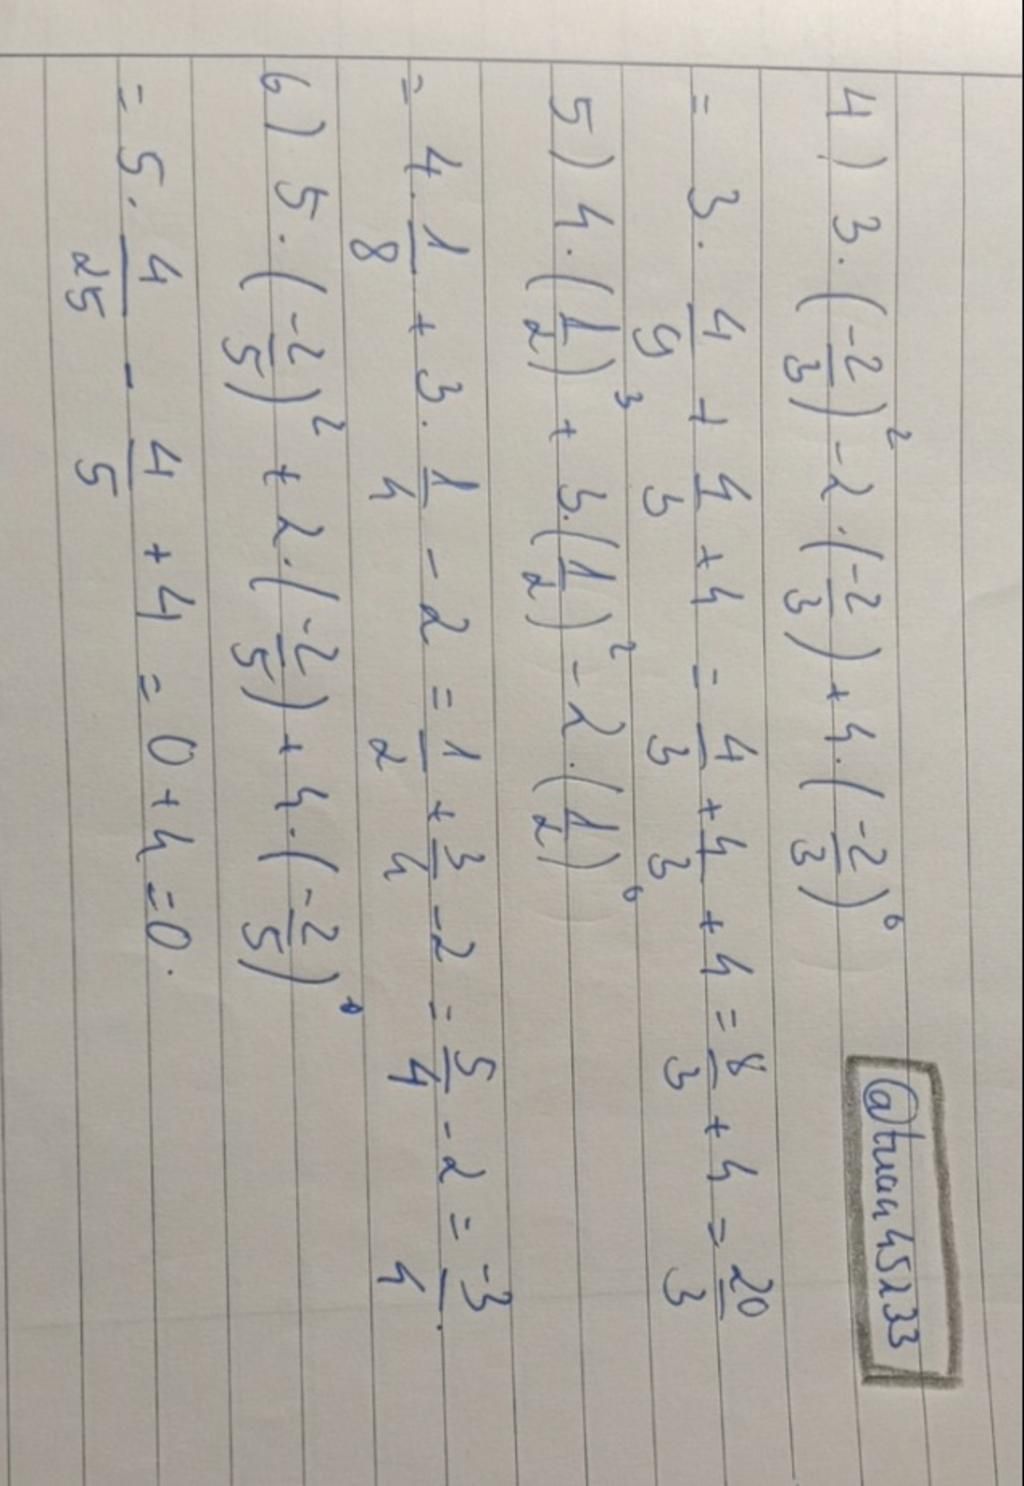 4) 3.(-2/3)² - 2.(-2/3) + 4.(-2/3)⁰
@tuan45233
= 3. 4/9 + 4/3 + 4 = 4/3 + 4/3 + 4 = 8/3 + 4 = 20/3
5) 4.(1/2)³ + 3.(1/2)² - 2.(1/2)⁰
= 4. 1/8 + 3. 1/4 - 2 = 1/2 + 3/4 - 2 = 5/4 - 2 = -3/4.
6) 5.(-2/5)² + 2.(-2/5) + 4.(-2/5)⁰
= 5. 4/25 - 4/5 + 4 = 0 + 4 = 0.